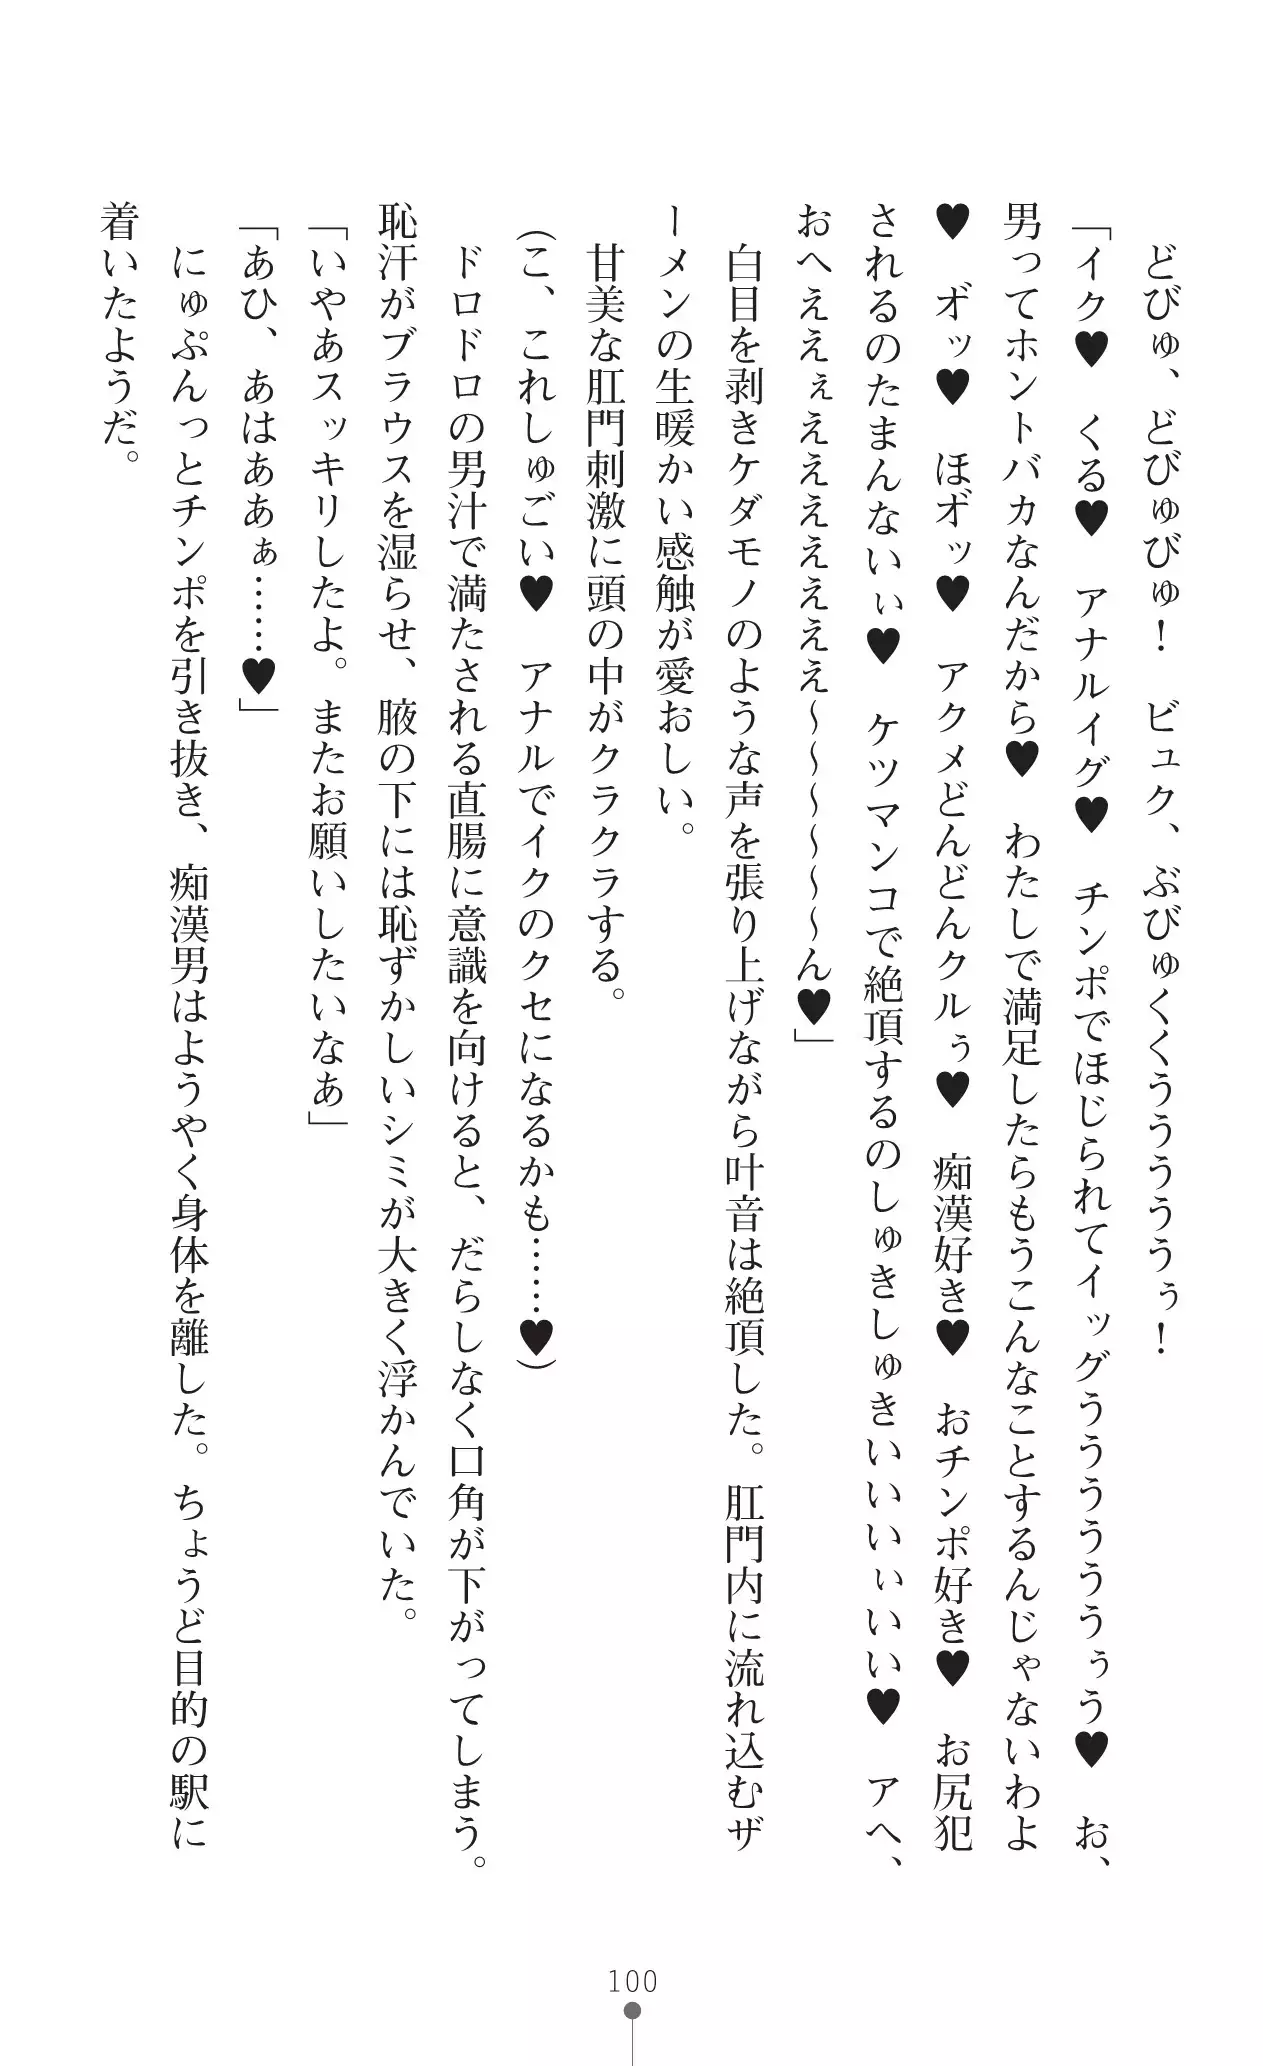 どびゅ、どびゅびゅ！　ビュク、ぶびゅくくうううううぅ！
「イク♥　くる♥　アナルイグ♥　チンポでほじられてイッグううううううぅう♥　お、
男ってホントバカなんだから♥　わたしで満足したらもうこんなことするんじゃないわよ
♥　ボッ♥　ほボッ♥　アクメどんどんクルぅ♥　痴漢好き♥　おチンポ好き♥　お尻犯
されるのたまんないぃ♥　ケツマンコで絶頂するのしゅきしゅきいいいぃいい♥　アへ、
おへええぇええええええ～～～～～～ん♥」
白目を剥きケダモノのような声を張り上げながら叶音は絶頂した。肛門内に流れ込むザ
ーメンの生暖かい感触が愛おしい。
甘美な肛門刺激に頭の中がクラクラする。
（こ、これしゅごい♥　アナルでイクのクセになるかも……♥）
ドロドロの男汁で満たされる直腸に意識を向けると、だらしなく口角が下がってしまう。
恥汗がブラウスを湿らせ、腋の下には恥ずかしいシミが大きく浮かんでいた。
「いやあスッキリしたよ。またお願いしたいなあ」
「あひ、あはああぁ……♥」
にゅぷんっとチンポを引き抜き、痴漢男はようやく身体を離した。ちょうど目的の駅に
着いたようだ。
100